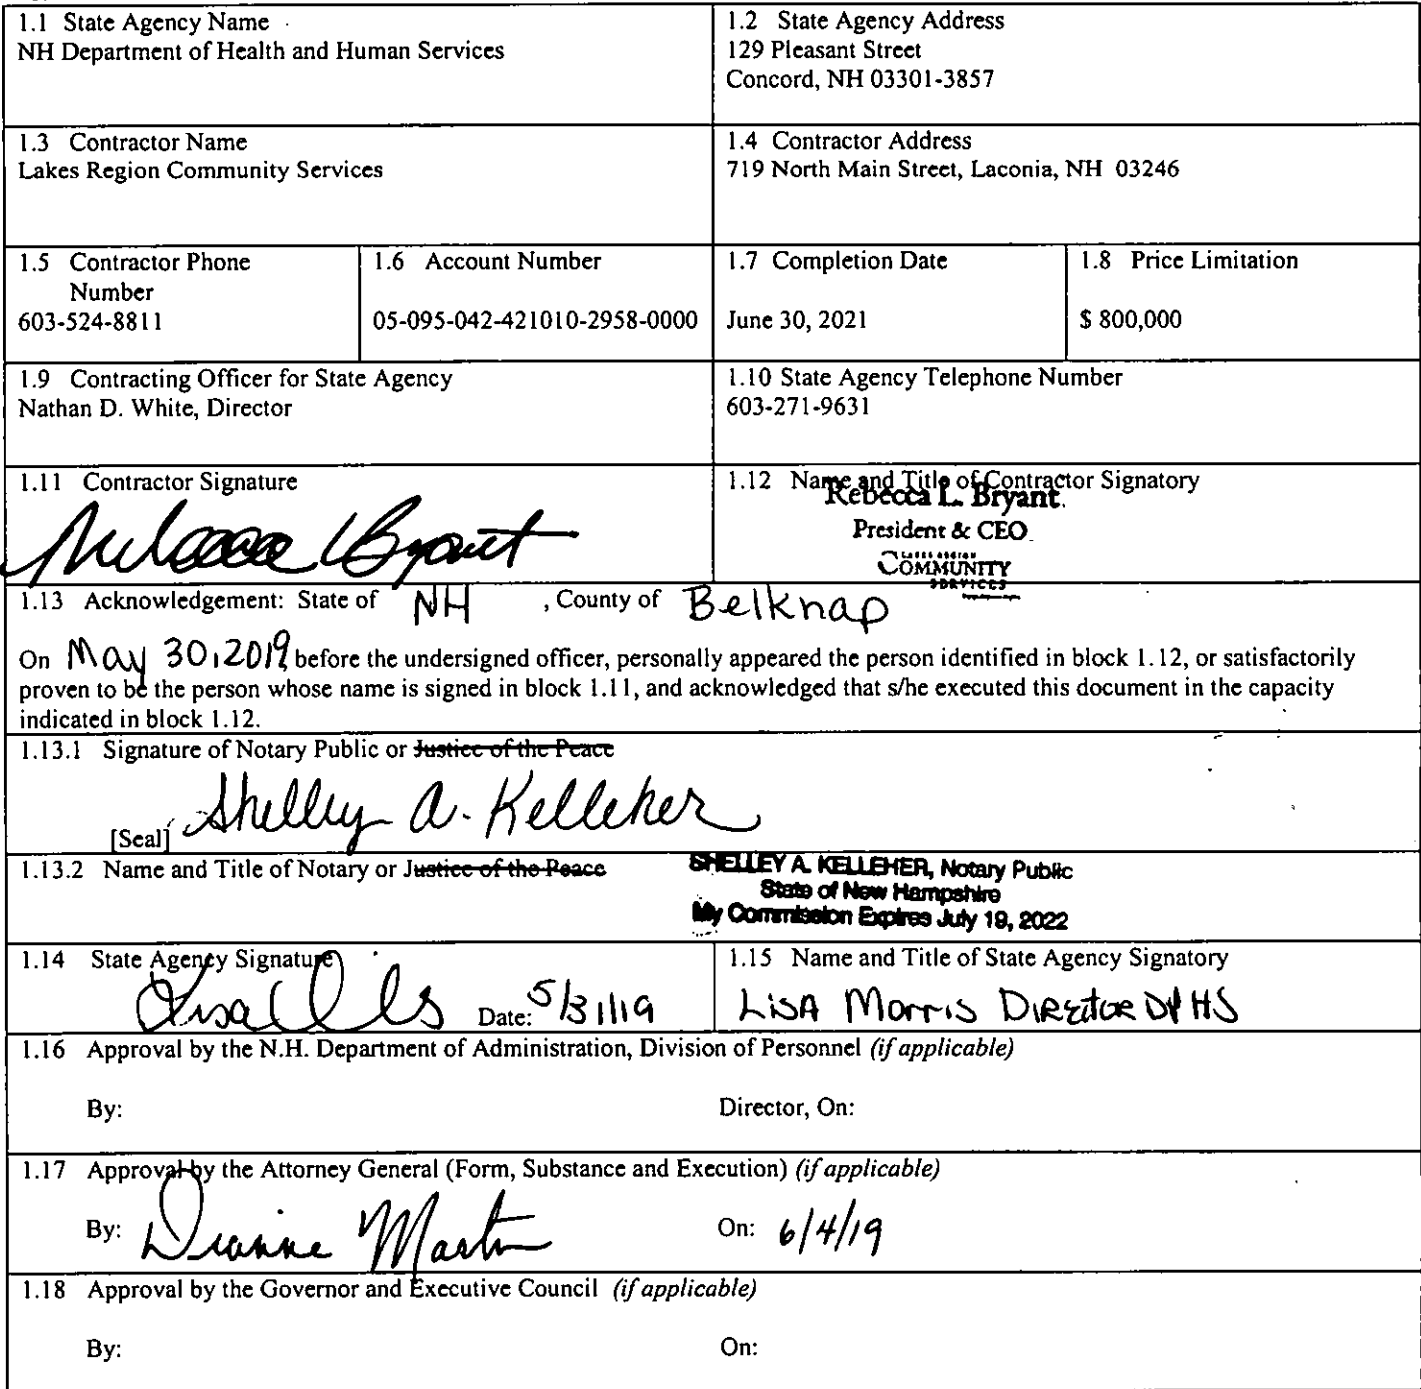 1.1 State Agency Name
NH Department of Health and Human Services
1.2 State Agency Address
129 Pleasant Street
Concord, NH 03301-3857
1.3 Contractor Name
Lakes Region Community Services
1.4 Contractor Address
719 North Main Street, Laconia, NH 03246
1.5 Contractor Phone
Number
603-524-8811
1.6 Account Number
05-095-042-421010-2958-0000
1.7 Completion Date
June 30, 2021
1.8 Price Limitation
$ 800,000
1.9 Contracting Officer for State Agency
Nathan D. White, Director
1.10 State Agency Telephone Number
603-271-9631
1.11 Contractor Signature
Rebecca L Bryant
1.12 Name and Title of Contractor Signatory
Rebecca L. Bryant
President & CEO
LAKES REGION
COMMUNITY
SERVICES
1.13 Acknowledgement: State of NH , County of Belknap
On May 30, 2019 before the undersigned officer, personally appeared the person identified in block 1.12, or satisfactorily
proven to be the person whose name is signed in block 1.11, and acknowledged that s/he executed this document in the capacity
indicated in block 1.12.
1.13.1 Signature of Notary Public or Justice of the Peace
Shelley A. Kelleher
[Seal]
1.13.2 Name and Title of Notary or Justice of the Peace
SHELLEY A. KELLEHER, Notary Public
State of New Hampshire
My Commission Expires July 19, 2022
1.14 State Agency Signature
Lisa
Date: 5/31/19
1.15 Name and Title of State Agency Signatory
LISA Morris DIRECTOR DPHS
1.16 Approval by the N.H. Department of Administration, Division of Personnel (if applicable)
By: Director, On:
1.17 Approval by the Attorney General (Form, Substance and Execution) (if applicable)
By: Dianne Martin On: 6/4/19
1.18 Approval by the Governor and Executive Council (if applicable)
By: On: